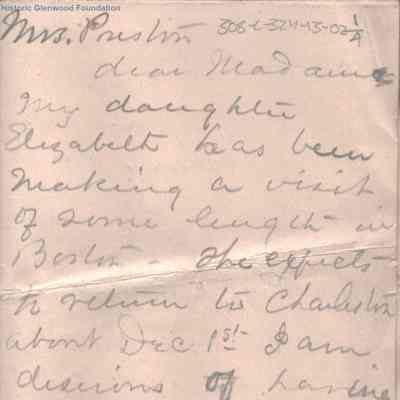 Historic Glenwood Foundation
Mrs. Preston
dear Madame
My daughter
Elizabeth has been
making a visit
of some length in
Boston - She expects
to return to Charleston
about Dec 1st I am
desirous of having